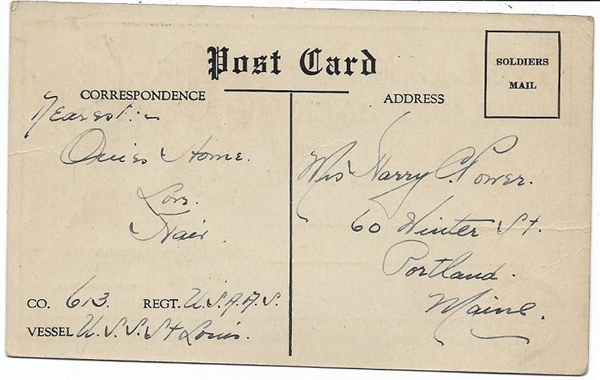 Post Card
SOLDIERS
MAIL
CORRESPONDENCE
ADDRESS
Dearest:-
Home.
Love
Mrs Harry C. Power.
60 Winter St.
Portland.
Maine.
CO. 613. REGT. U.S.A.A.S.
VESSEL U.S.S. St Louis.